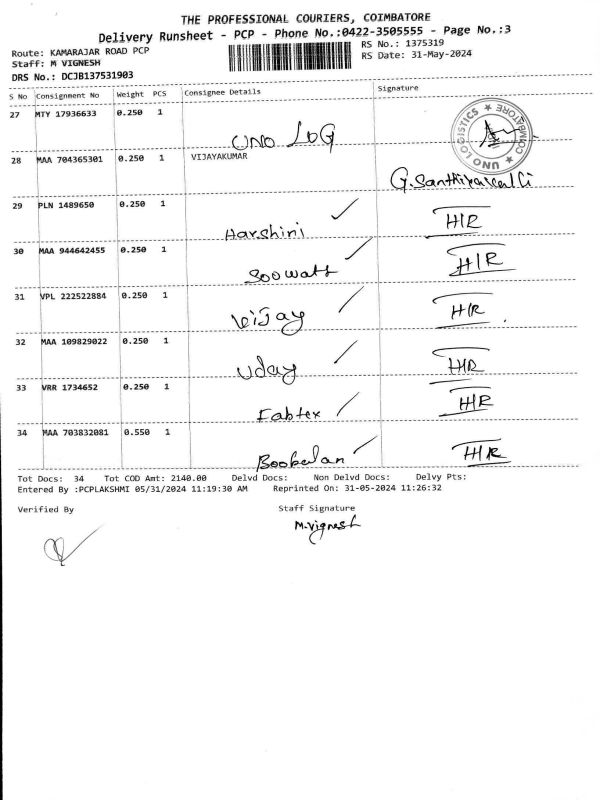 THE PROFESSIONAL COURIERS, COIMBATORE
Delivery Runsheet - PCP - Phone No.:0422-3505555 - Page No.:3
Route: KAMARAJAR ROAD PCP
RS No.: 1375319
Staff: M VIGNESH
RS Date: 31-May-2024
DRS No.: DCJB137531903
S No Consignment No Weight PCS Consignee Details Signature
27 MTY 17936633 0.250 1 UNO LOG
UNO LOGISTICS ★ COIMBATORE ★
28 MAA 704365301 0.250 1 VIJAYAKUMAR
29 PLN 1489650 0.250 1 Harshini H/R
30 MAA 944642455 0.250 1 Soowatt H/R
31 VPL 222522884 0.250 1 Vijay H/R
32 MAA 109829022 0.250 1 Uday H/R
33 VRR 1734652 0.250 1 Fabtex H/R
34 MAA 703832081 0.550 1 Boobalan H/R
Tot Docs: 34 Tot COD Amt: 2140.00 Delvd Docs: Non Delvd Docs: Delvy Pts:
Entered By :PCPLAKSHMI 05/31/2024 11:19:30 AM Reprinted On: 31-05-2024 11:26:32
Verified By Staff Signature
M.Vignesh